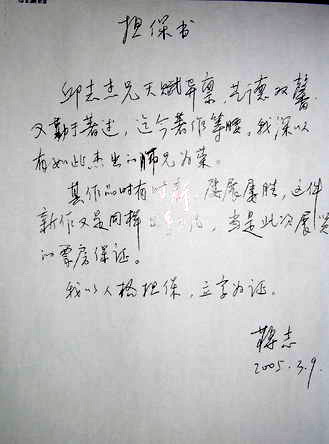 担保书
邱志杰兄天赋异禀，艺德双馨，
又勤于著述，迄今著作等腰。我深以
有如此杰出的师兄为荣。
其作品时有 屡展屡胜，这件
新作又是同样 当是此次展览
的票房保证。
我以人格担保，立字为证。
蒋志
2005.3.9.